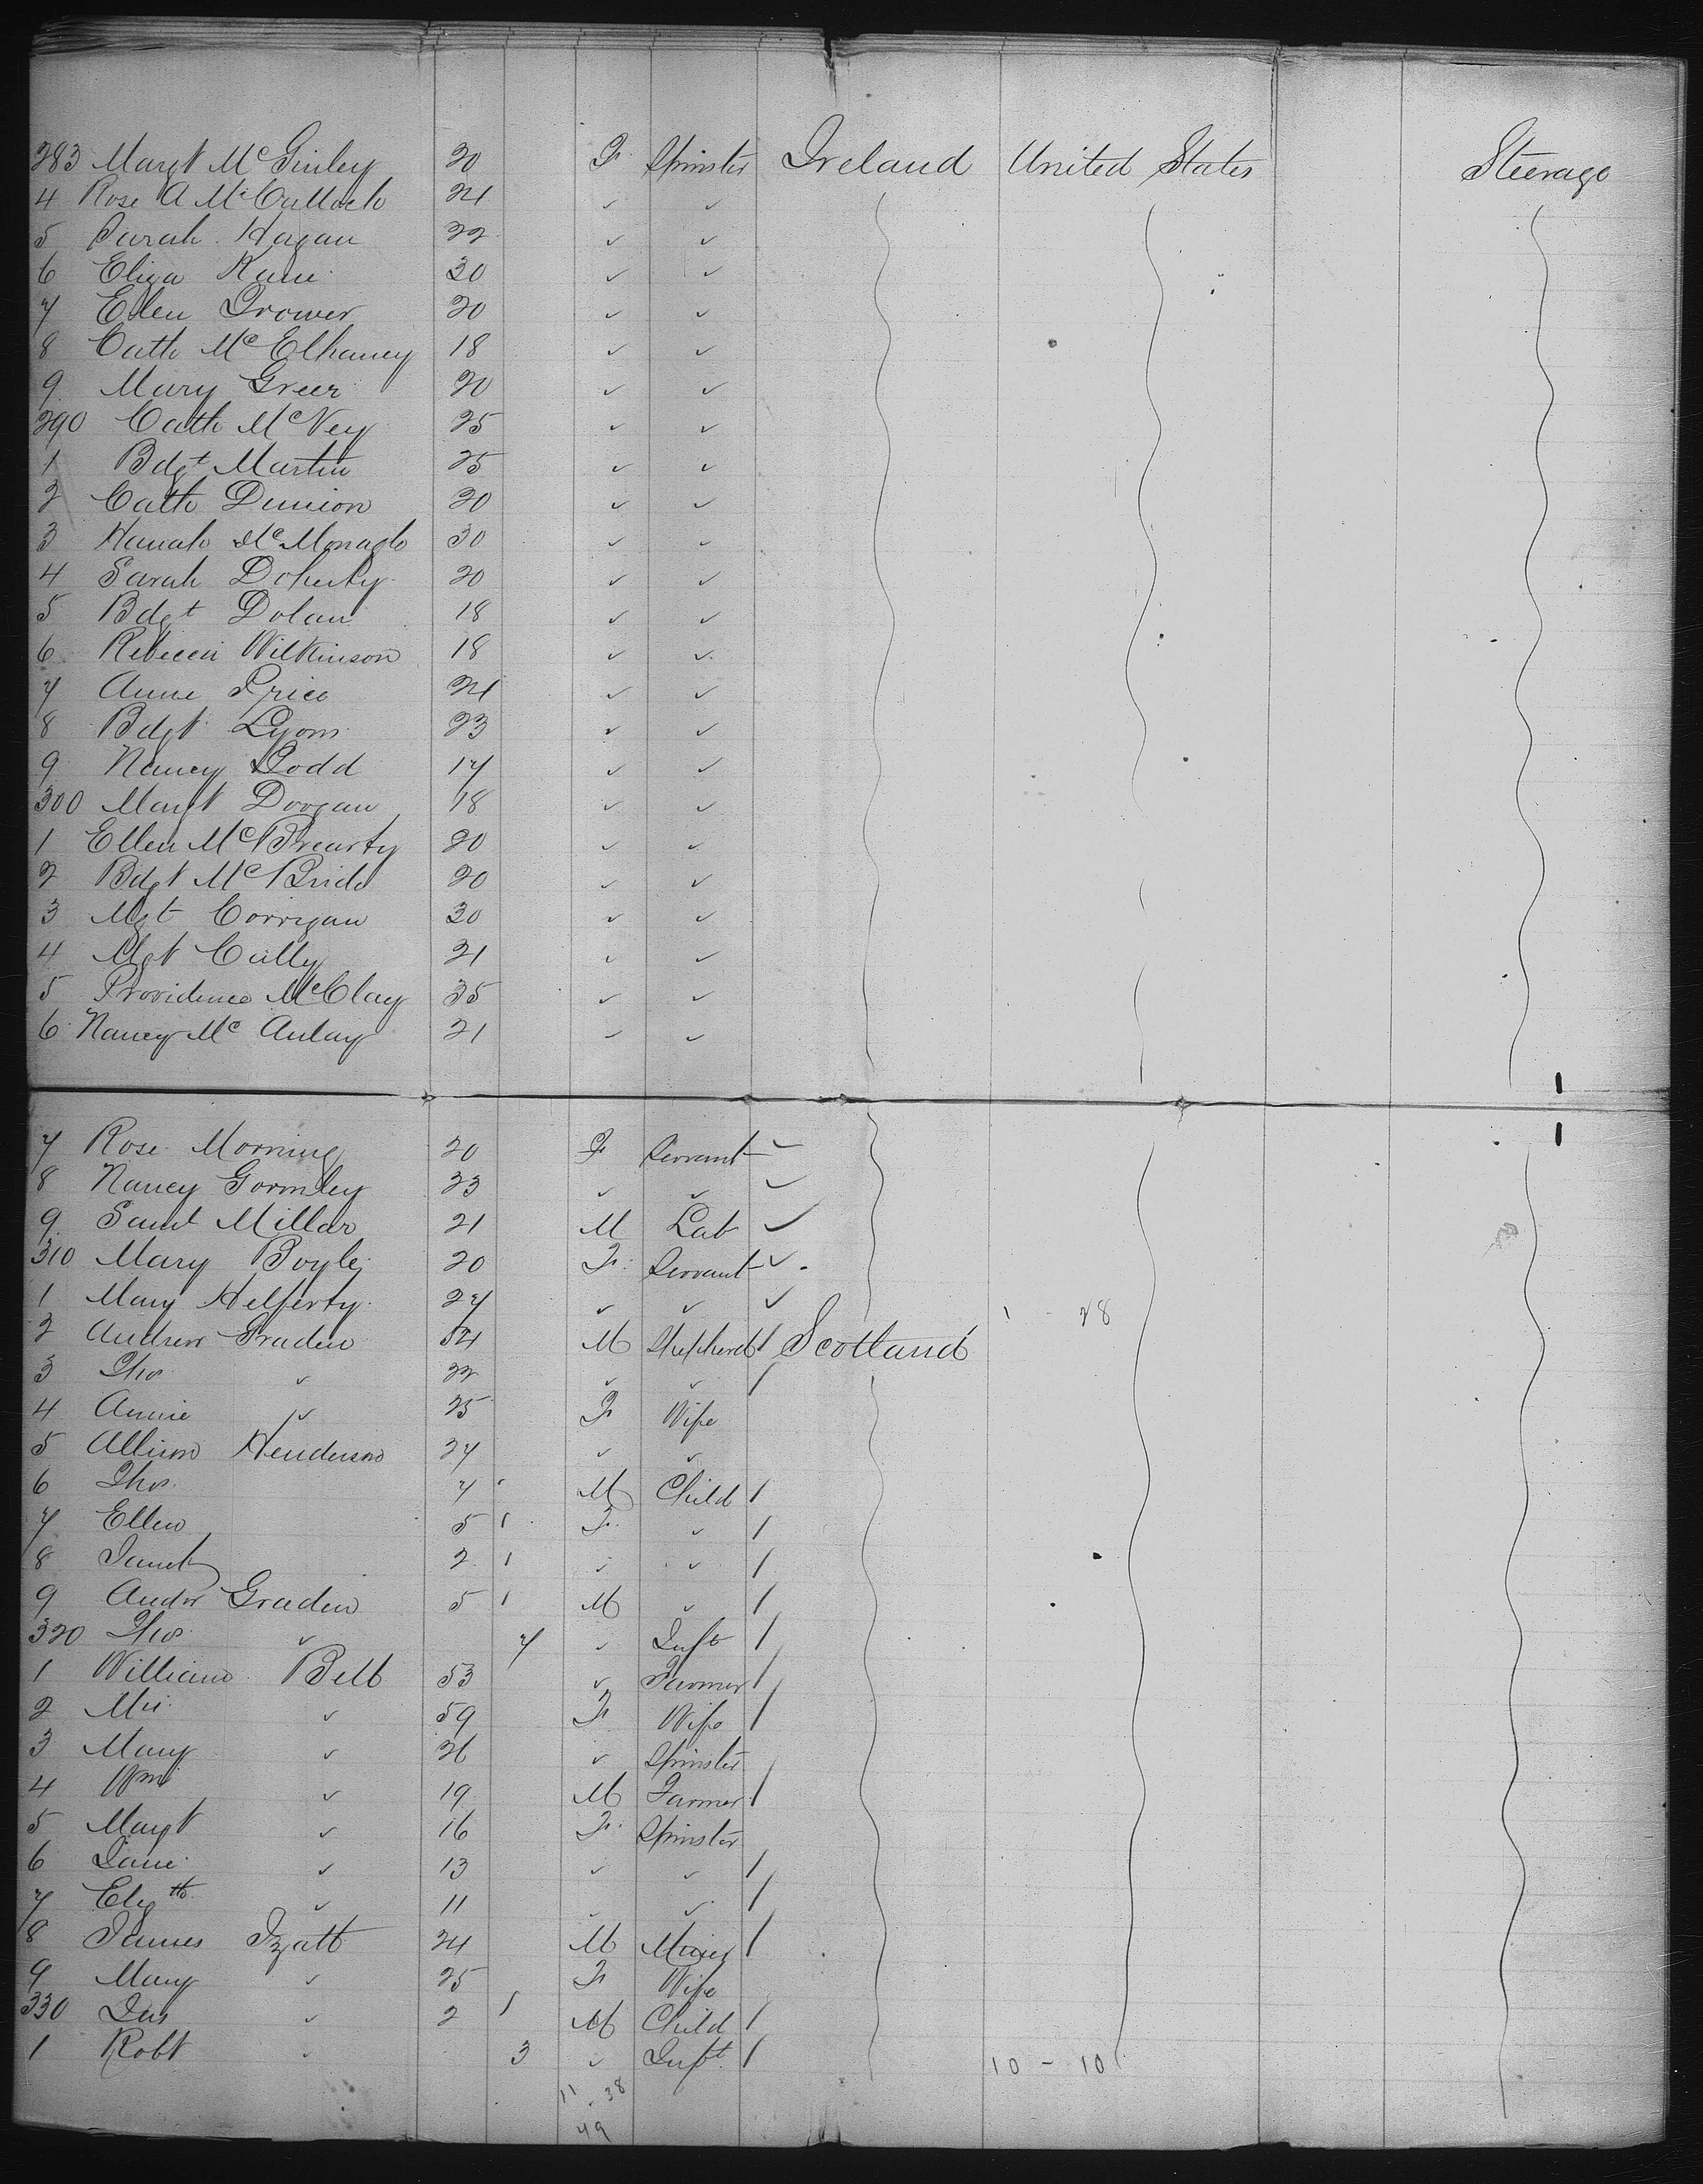 283 Margt McGinley 20 F. Spinster Ireland United States Steerage
4 Rose A McCulloch 24 ✓ ✓
5 Sarah Hagan 22 ✓ ✓
6 Eliza Kane 30 ✓ ✓
7 Ellen Trower 20 ✓ ✓
8 Cath McElhaney 18 ✓ ✓
9 Mary Greer 20 ✓ ✓
290 Cath McVey 25 ✓ ✓
1 Bdgt Martin 25 ✓ ✓
2 Cath Dunion 20 ✓ ✓
3 Hanah McMonagle 30 ✓ ✓
4 Sarah Doherty 20 ✓ ✓
5 Bdgt Dolan 18 ✓ ✓
6 Rebecca Wilkinson 18 ✓ ✓
7 Anne Price 24 ✓ ✓
8 Bdgt Lyons 23 ✓ ✓
9 Nancy Dodd 17 ✓ ✓
300 Margt Doogan 18 ✓ ✓
1 Ellen McBrearty 20 ✓ ✓
2 Bdgt McBride 20 ✓ ✓
3 Mgt Corrigan 30 ✓ ✓
4 Mgt Cully 21 ✓ ✓
5 Providence McClay 35 ✓ ✓
6 Nancy McAulay 21 ✓ ✓
7 Rose Morning 20 F Servant ✓
8 Nancy Gormley 23 ✓ ✓ ✓
9 Saml Millar 21 M Lab ✓
310 Mary Boyle 20 F. Servant ✓
1 Mary Helferty 27 ✓ ✓ ✓ 1 - 28
2 Andrew Graden 54 M Shepherd / Scotland
3 Thos ✓ 22 ✓ ✓ /
4 Annie ✓ 25 F Wife
5 Allison Henderson 27 ✓ ✓
6 Thos. 7 ' M Child /
7 Ellen 5 1 F. ✓ /
8 Janet 2 1 ✓ ✓ /
9 Andw Graden 5 1 M ✓ /
320 Thos ✓ 7 ✓ Inft /
1 William Bell 53 ✓ Farmer /
2 Mrs ✓ 59 F Wife /
3 Mary ✓ 26 ✓ Spinster
4 Wm ✓ 19 M Farmer /
5 Margt ✓ 16 F. Spinster
6 Jane ✓ 13 ✓ ✓ /
7 Elizth ✓ 11 ✓ ✓ /
8 James Izatt 24 M Miner /
9 Mary ✓ 25 F Wife
330 Jas ✓ 2 1 M Child /
1 Robt ✓ 3 ✓ Inft. / 10 - 10
11 . 38
49